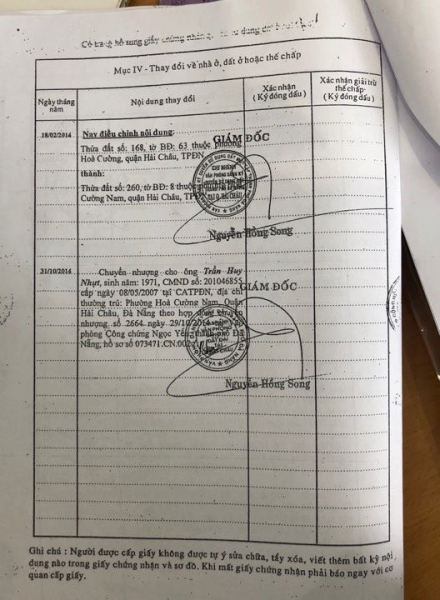 Mục IV - Thay đổi về nhà ở, đất ở hoặc thế chấp
Ngày tháng năm
Nội dung thay đổi
Xác nhận
( Ký đóng dấu)
Xác nhận giải trừ thế chấp
( Ký đóng dấu)
18/02/2014
Nay điều chỉnh nội dung:
Thửa đất số: 168, tờ BĐ: 63 thuộc phường
Hoà Cường, quận Hải Châu, TPĐN
thành:
Thửa đất số: 260, tờ BĐ: 8 thuộc
Cường Nam, quận Hải Châu,
GIÁM ĐỐC
Nguyễn Hồng Song
31/10/2014
Chuyển nhượng cho ông Trần Huy
Nhựt, sinh năm: 1971, CMND số: 201046855
cấp ngày 08/05/2007 tại CATPĐN, địa chỉ
thường trú: Phường Hoà Cường Nam, Quận
Hải Châu, Đà Nẵng theo hợp đồng chuyển
nhượng số 2664 ngày 29/10/
phòng Công chứng Ngọc Yến
Nẵng, hồ sơ số 073471.CN.002
GIÁM ĐỐC
Nguyễn Hồng Song
Ghi chú : Người được cấp giấy không được tự ý sửa chữa, tẩy xóa, viết thêm bất kỳ nội
dung nào trong giấy chứng nhận và sơ đồ. Khi mất giấy chứng nhận phải báo ngay với cơ
quan cấp giấy.